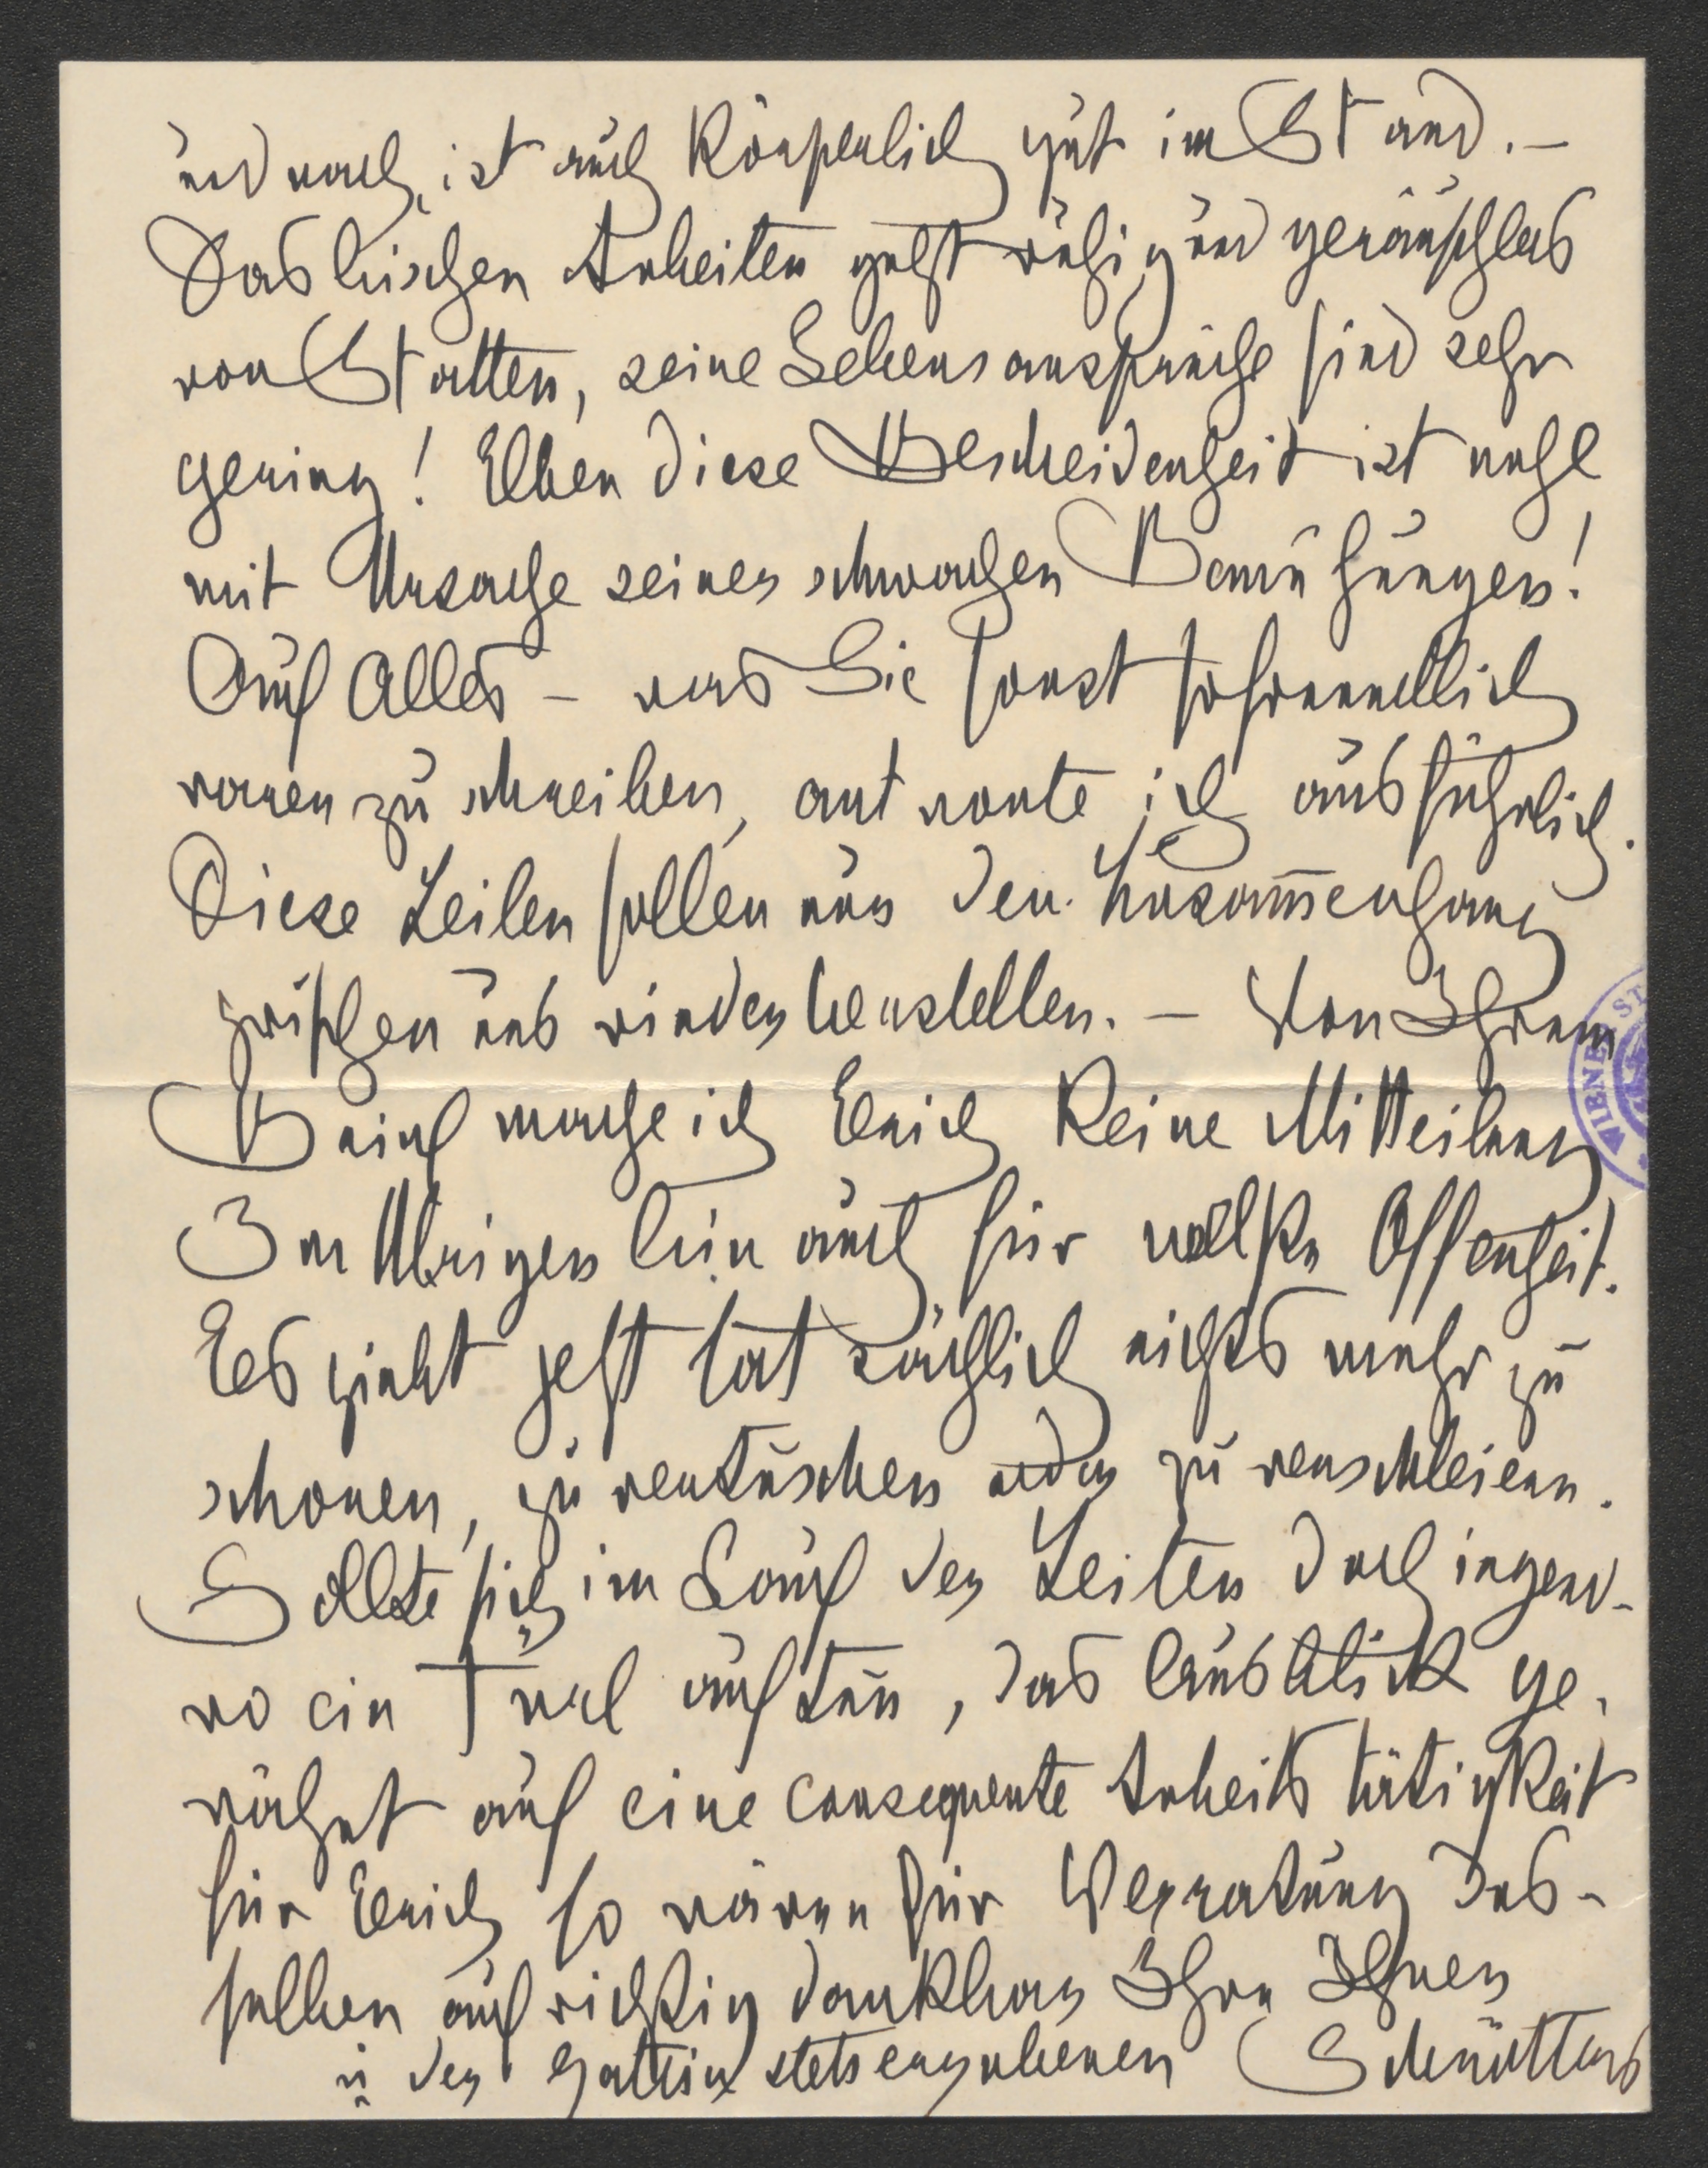 und nach, ist auch körperlich gut im Stand. –
Das bischen Arbeiten geht ruhig und geräuschlos
von Statten, seine Lebensansprüche sind sehr
gering! Eben diese Bescheidenheit ist wohl
mit Ursache seiner schwachen Bemühungen!
Auf Alles – was Sie sonst so freundlich
waren zu schreiben, antworte ich ausführlich.
Diese Zeilen sollen nur den Zusam̅enhang
zwischen uns wieder herstellen. – Von Ihrem
Brief mache ich Erich keine Mitteilung
Im Übrigen bin auch für vollste Offenheit.
Es giebt jetzt tatsächlich nichts mehr zu
schonen, zu vertuschen oder zu verschleiern.
Sollte sich im Lauf der Zeiten doch irgend-
wo ein Türl auftun, das Ausblick ge-
währt auf eine consequente Arbeitstätigkeit
für Erich so wären für Verratung des-
selben aufrichtig dankbar Ihre Ihnen
u. der Gattin stets ergebenen Schrötters
WIENER ST